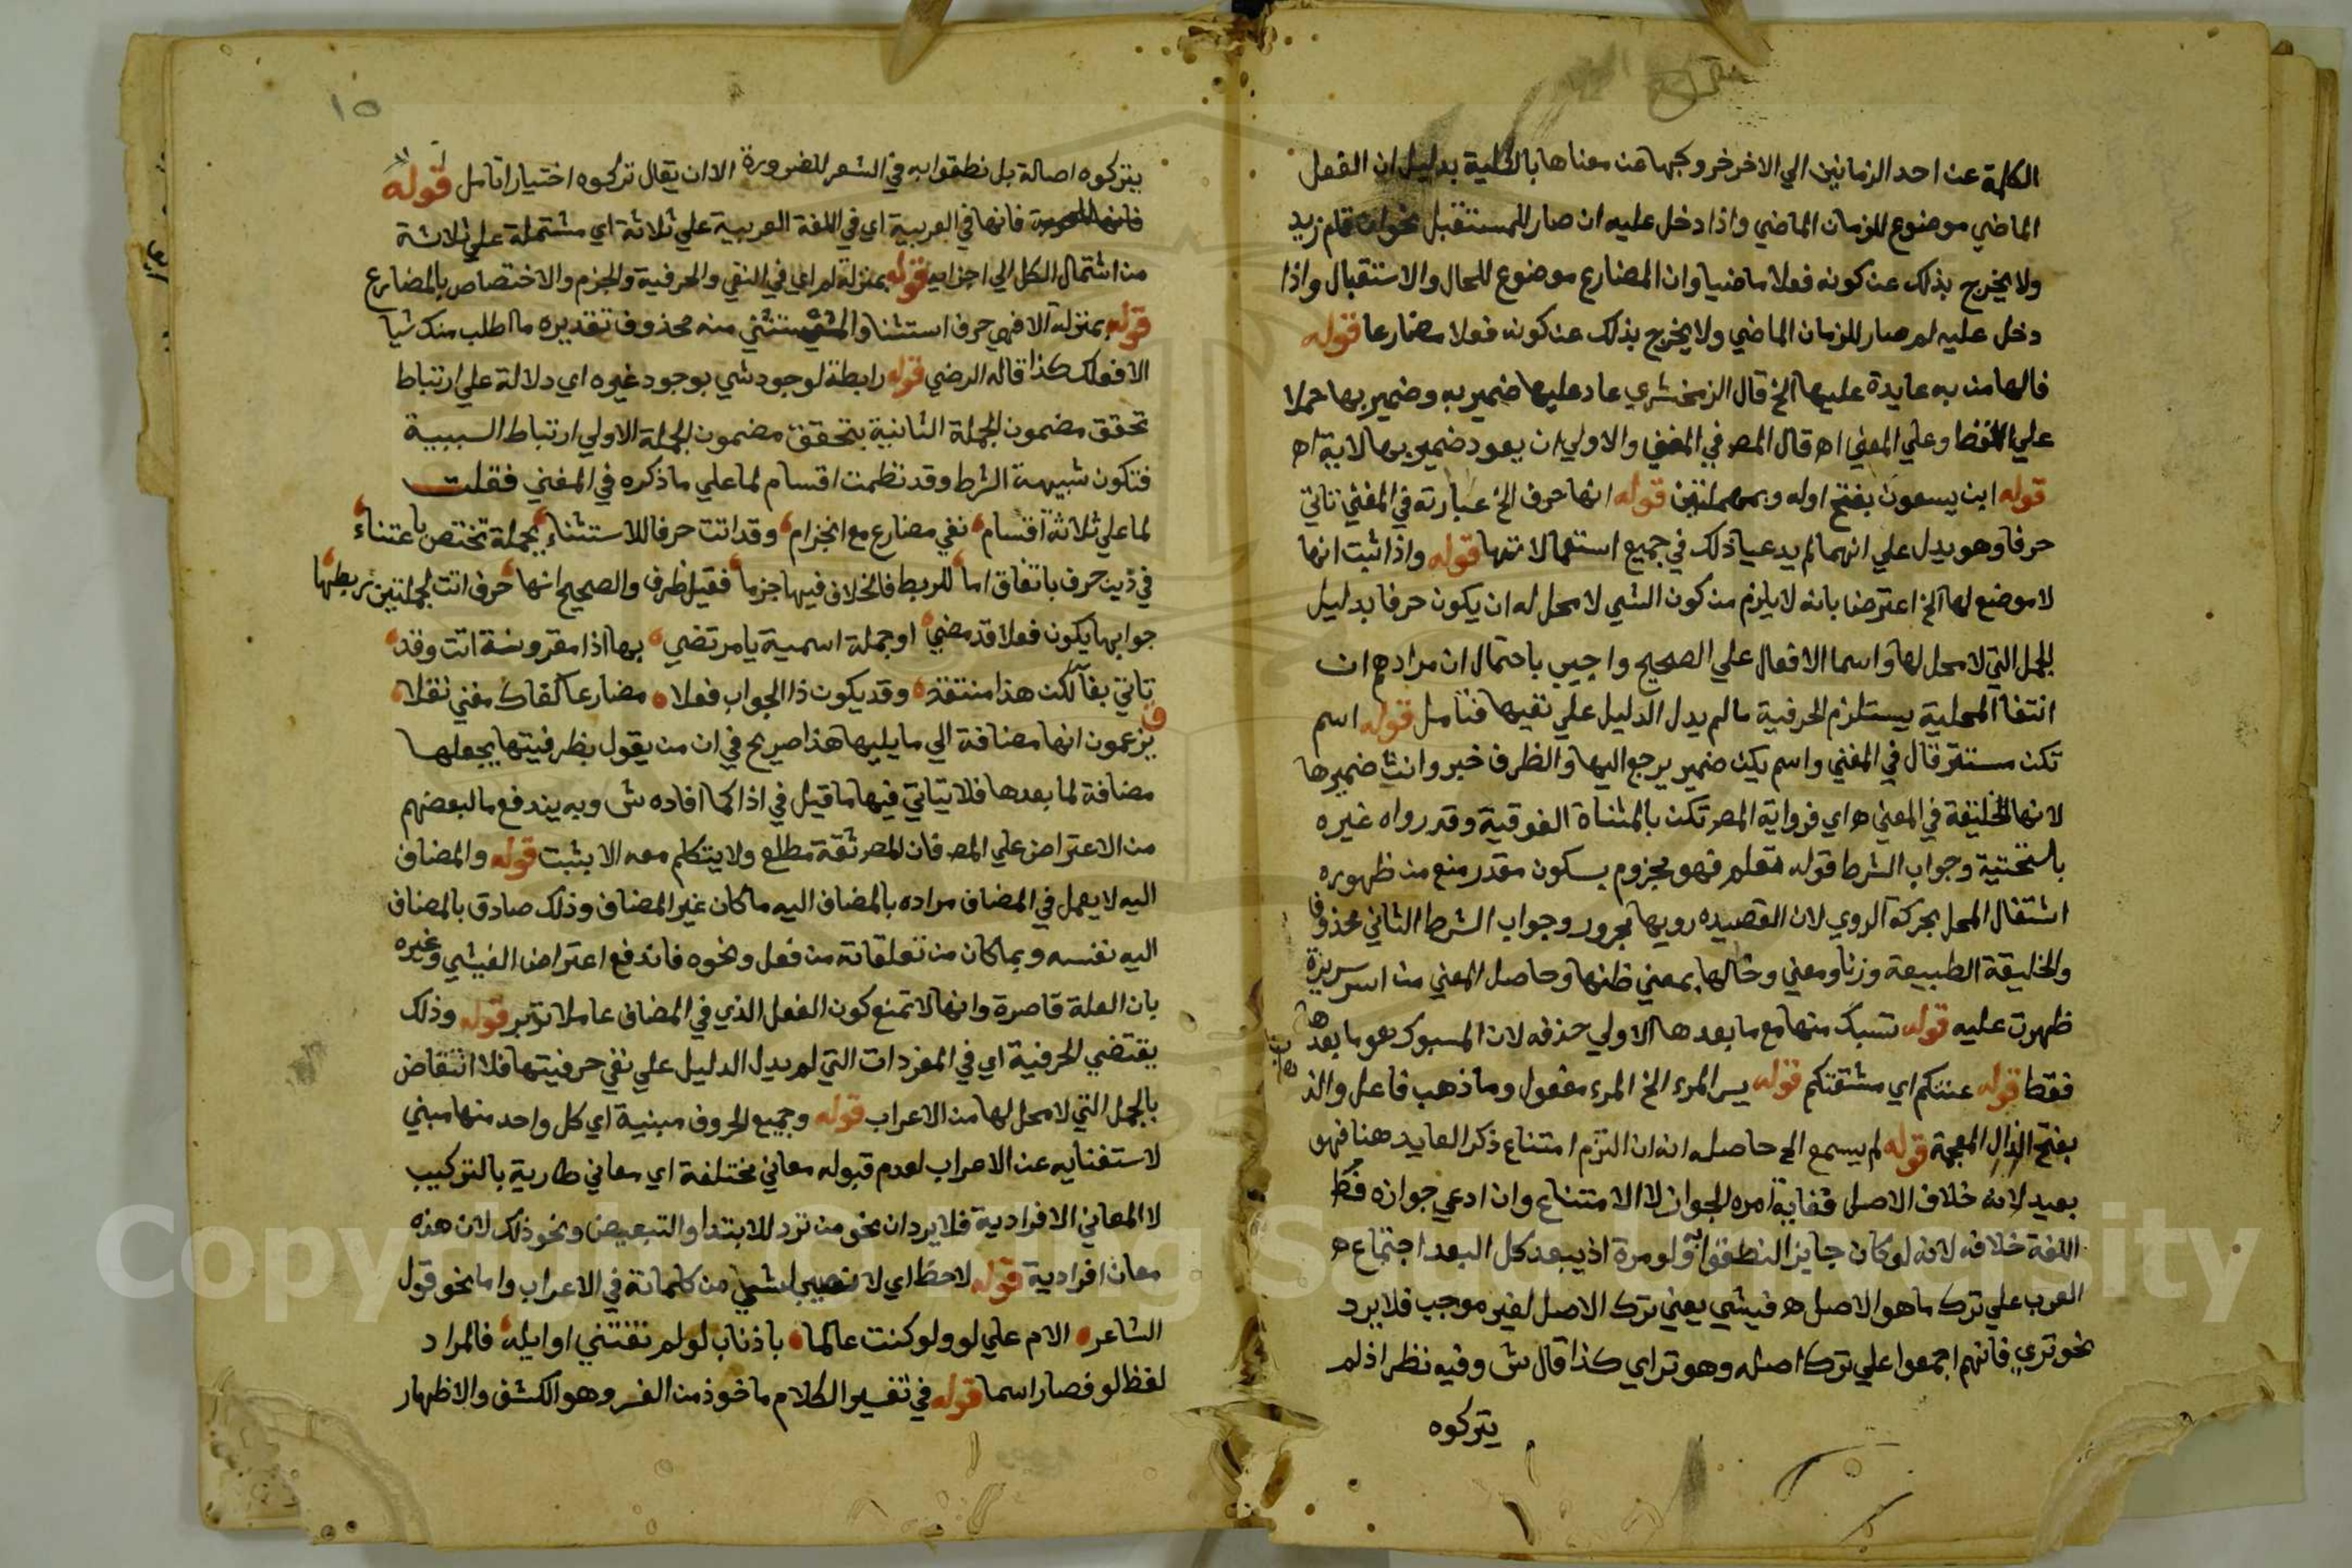 الكلمة عن احد الزمانين الي الاخر خروجها عن معناها بالكلية بدليل ان الفعل
الماضي موضوع للزمان الماضي واذا دخل عليه ان صار للمستقبل نحو ان قام زيد
ولا يخرج بذلك عن كونه فعلا ماضيا وان المضارع موضوع للحال والاستقبال واذا
دخل عليه لم صار للزمان الماضي ولا يخرج بذلك عن كونه فعلا مضارعا قوله
فالهامن به عايدة عليها الخ قال الزمخشري عاد عليها ضمير به وضمير بها حملا
علي اللفظ وعلي المعني اه قال المصر في المغني والاولي ان يعود ضمير بها لاية اه
قوله ابن يسعون بفتح اوله وبمهملتين قوله انها حرف الخ عبارته في المغني تاتي
حرفا وهو يدل علي انهما لم يدعيا ذلك في جميع استعمالاتها قوله واذا ثبت انها
لا موضع لها الخ اعترضا بانه لا يلزم من كون الشي لا محل له ان يكون حرفا بدليل
الجمل التي لا محل لها واسما الافعال علي الصحيح واجيب باحتمال ان مرادهم ان
انتفا المحلية يستلزم الحرفية ما لم يدل الدليل علي نفيها فتامل قوله اسم
تكن مستتر قال في المغني واسم يكن ضمير يرجع اليها والظرف خبر وانث ضميرها
لانها الخليقة في المعني ه اي فرواية المصر تكن بالمثناة الفوقية وقد رواه غيره
بالتحتية وجواب الشرط قوله تعلم فهو مجزوم بسكون مقدر منع من ظهوره
اشتغال المحل بحركة الروي لان القصيده رويها مجرور وجواب الشرط الثاني محذوفا
والخليقة الطبيعة وزنا ومعني وخالها بمعني ظنها وحاصل المعني من اسر سريرة
ظهرت عليه قوله تسبك منها مع ما بعدها الاولي حذفه لان المسبوك هو ما بعدها
فقط قوله عنتكم اي مشقتكم قوله يسر المرء الخ المرء مفعول وما ذهب فاعل والذ
بفتح الذال المعجمة قوله لم يسمع الخ حاصله انه ان التزم امتناع ذكر العايد هنا فهو
بعيد لانه خلاف الاصل فغاية امره الجواز لا الامتناع وان ادعي جوازه فكظ
اللغة خلافه لانه لو كان جايز النطقوا به ولو مرة اذ يبعد كل البعد اجتماع ه
العرب علي ترك ما هو الاصل ه فيشي يعني ترك الاصل لغير موجب فلا يرد
نحو تري فانهم اجمعوا علي ترك اصله وهو تراي كذا قال ش وفيه نظر اذ لم
يتركوه
١٥
يتركوه اصالة بل نطقوا به في الشعر للضرورة الا ان يقال تركوه اختيارا تامل قوله
فانها في العربية اي في اللغة العربية علي ثلاثة اي مشتملة علي ثلاثة
من اشتمال الكل الي اجزايه قوله بمنزلة لم اي في النفي والحرفية والجزم والاختصاص بالمضارع
قوله بمنزلة الا فهي حرف استثنا والمستثني منه محذوف تقديره ما اطلب منك شيا
الا فعلك كذا قاله الرضي قوله رابطة لوجود شي بوجود غيره اي دلالة علي ارتباط
تحقق مضمون الجملة الثانية بتحقق مضمون الجملة الاولي ارتباط السببية
فتكون شبيهة الشرط وقد نظمت اقسام لما علي ما ذكره في المغني فقلت
لما علي ثلاثة اقسام نفي مضارع مع انجزام وقد اتت حرفا للاستثناء بجملة تختص باعتناء
في ذين حرف باتفاق اما للربط فالخلاف فيها جزما فقيل ظرف والصحيح انها حرف اتت لجملتين ربطها
جوابها يكون فعلا قد مضي او جملة اسمية يا مرتضي بها اذا مقرونة اتت وقد
تاتي بفا لكن هذا منتقد وقد يكون ذا الجواب فعلا مضارعا كفاك مغني نقلا
يزعمون انها مضافة الي ما يليها هذا صريح في ان من يقول بظرفيتها يجعلها
مضافة لما بعدها فلا يتاتي فيها ما قيل في اذا كما افاده ش وبه يندفع ما لبعضهم
من الاعتراض علي المصر فان المصر ثقة مطلع ولا يتكلم معه الا بثبت قوله والمضاف
اليه لا يعمل في المضاف مراده بالمضاف اليه ما كان غير المضاف وذلك صادق بالمضاف
اليه نفسه وبما كان من تعلقاته من فعل ونحوه فاندفع اعتراض الفيشي وغيره
بان العلة قاصرة وانها لا تمنع كون الفعل الذي في المضاف عاملا تدبر قوله وذلك
يقتضي الحرفية اي في المفردات التي لم يدل الدليل علي نفي حرفيتها فلا انتقاض
بالجمل التي لا محل لها من الاعراب قوله وجميع الحروف مبنية اي كل واحد منها مبني
لاستغنايه عن الاعراب لعدم قبوله معاني مختلفة اي معاني طارية بالتركيب
لا المعاني الافرادية فلا يرد ان نحو من ترد للابتدا والتبعيض ونحو ذلك لان هذه
معان افرادية قوله لاحظ اي لا نصيب لشي من كلماته في الاعراب واما نحو قول
الشاعر الام علي لو ولو كنت عالما باذناب لو لم تفتني اوايله فالمراد
لفظ لو فصار اسما قوله في تفسير الكلام ماخوذ من الفسر وهو الكشف والاظهار
Copyright © King Saud University